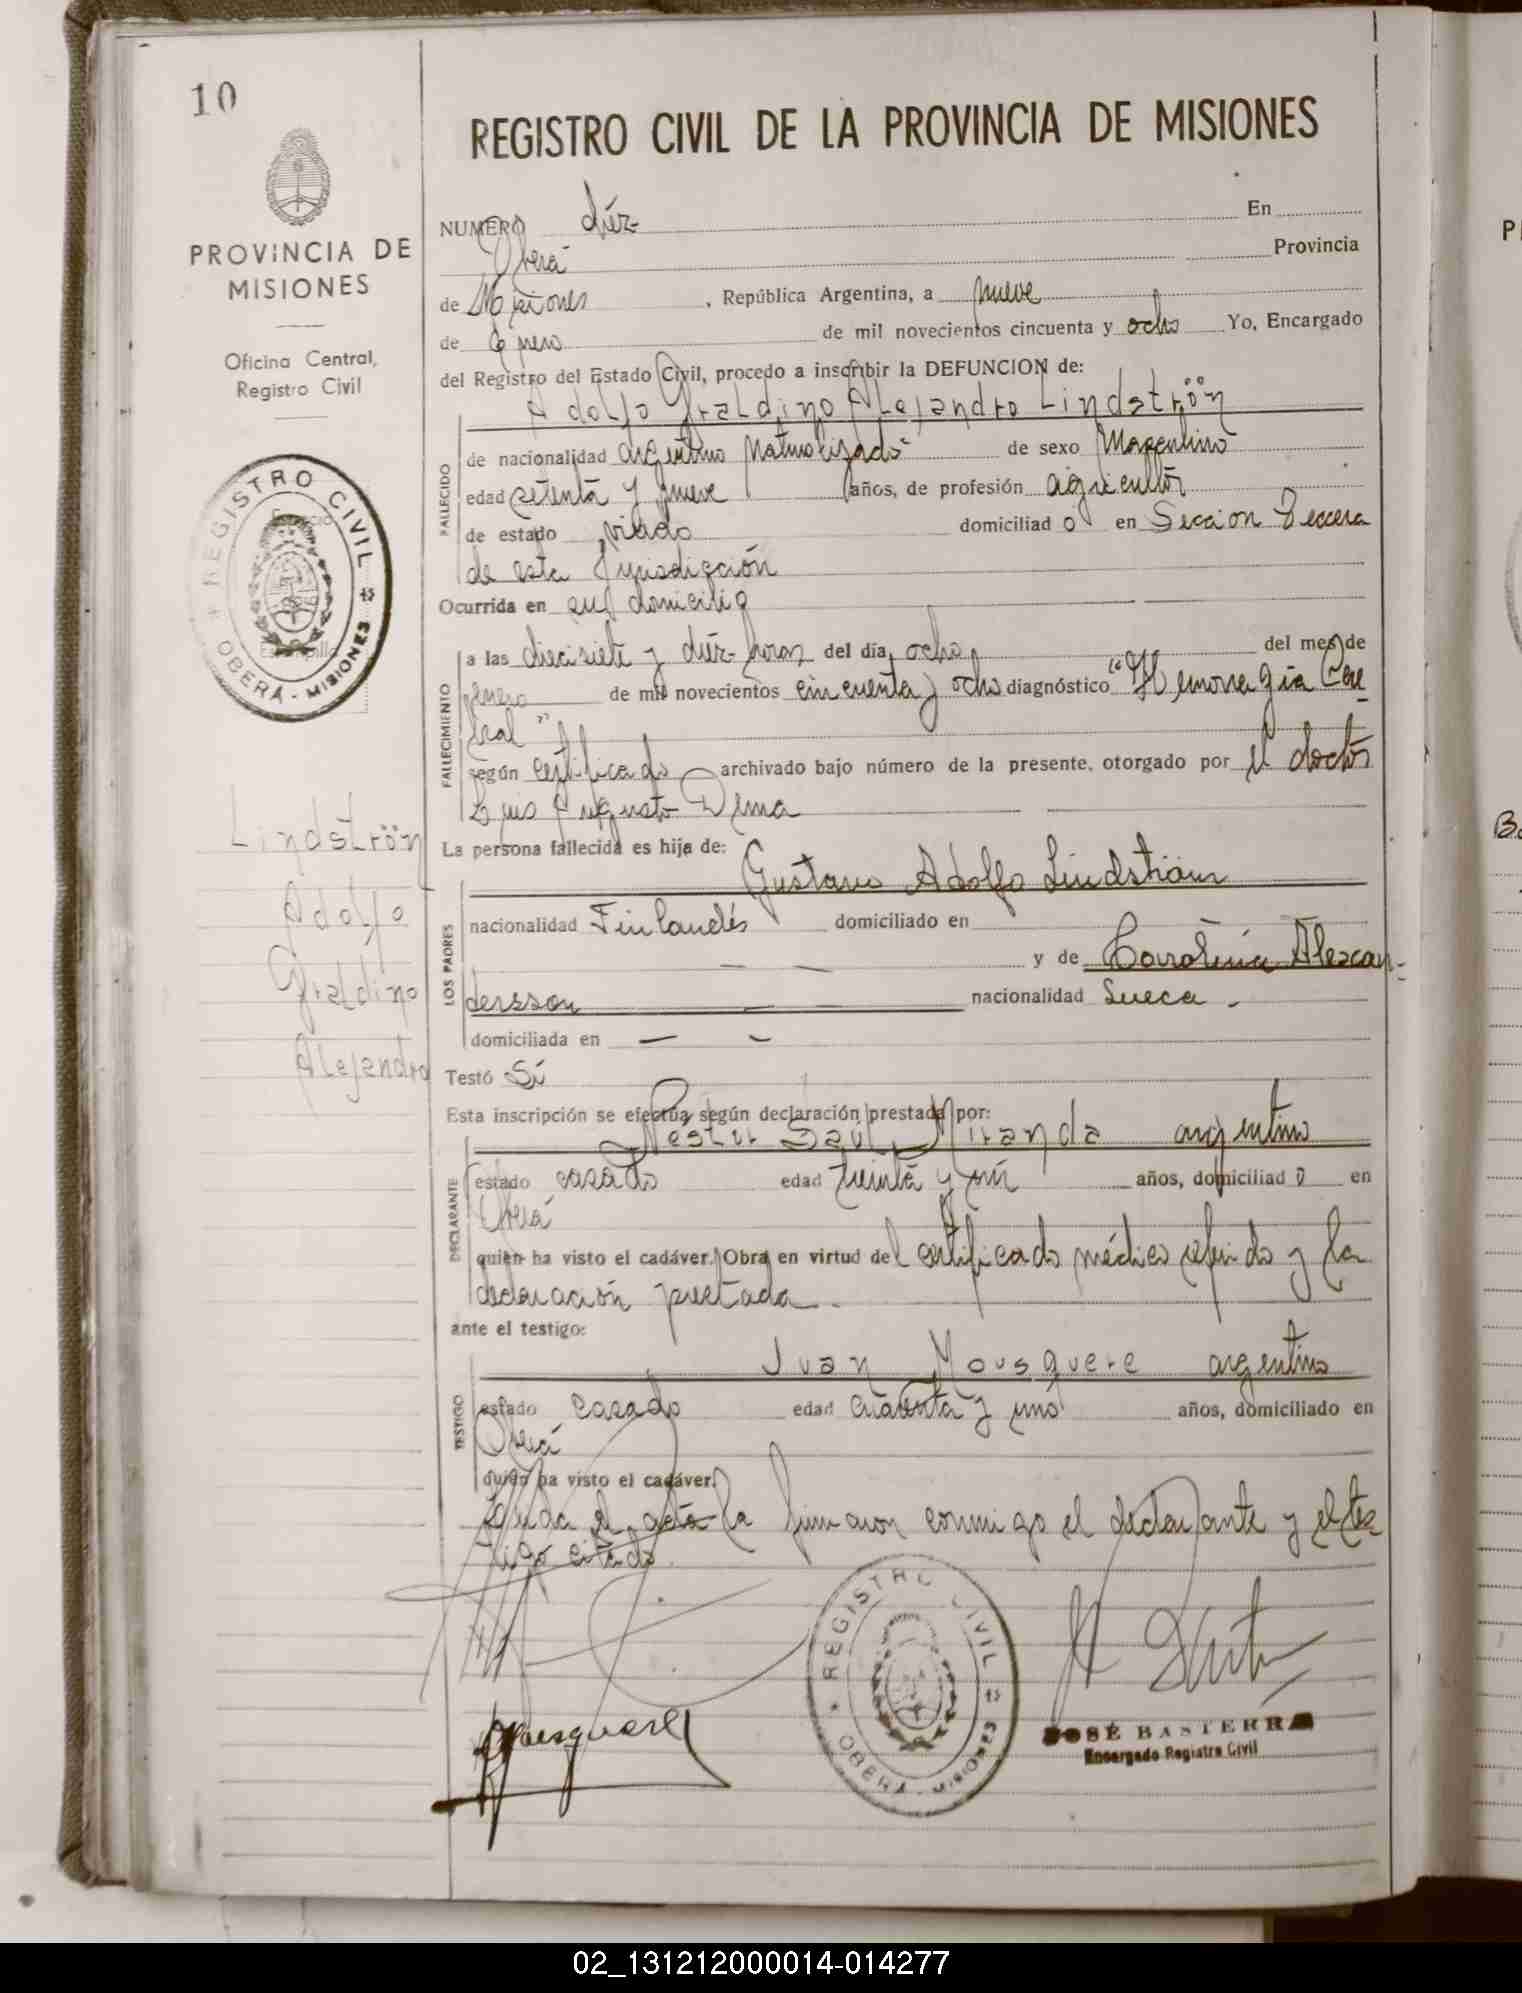 10
REGISTRO CIVIL DE LA PROVINCIA DE MISIONES
PROVINCIA DE
MISIONES
Oficina Central,
Registro Civil
REGISTRO CIVIL
OBERÁ - MISIONES
Lindströn
Adolfo
Graldino
Alejandro
NUMERO diéz- En
Oberá Provincia
de Misiones , República Argentina, a nueve
de Enero de mil novecientos cincuenta y ocho Yo, Encargado
del Registro del Estado Civil, procedo a inscribir la DEFUNCION de:
Adolfo Graldino Alejandro Lindströn
FALLECIDO
de nacionalidad argentino Naturalizado de sexo Masculino
edad setenta y nueve años, de profesión agricultor
de estado viudo domiciliad o en Sección Tercera
de esta Jurisdicción
Ocurrida en su domicilio
FALLECIMIENTO
a las diecisiete y diéz horas del día ocho del mes de
enero de mil novecientos cincuenta y ocho diagnóstico "Hemorragia Cere
bral"
según certificado archivado bajo número de la presente, otorgado por el doctor
Luis Augusto Dema
La persona fallecida es hija de:
LOS PADRES
Gustavo Adolfo Lindström
nacionalidad Finlandés domiciliado en
— — y de Carolina Alexan-
dersson — — nacionalidad Sueca -
domiciliada en — —
Testó Sí
Esta inscripción se efectúa según declaración prestada por:
DECLARANTE
Nestor Saúl Miranda argentino
estado casado edad treinta y años, domiciliad o en
Oberá
quien ha visto el cadáver. Obra en virtud del certificado médico referido y la
declaración prestada.
ante el testigo:
TESTIGO
Juan Mousquere argentino
estado casado edad cuarenta y uno años, domiciliado en
Oberá
quien ha visto el cadáver.
Leída el acta la firmaron conmigo el declarante y el tes
tigo citado.
REGISTRO CIVIL
OBERÁ - MISIONES
JOSÉ BASTERRA
Encargado Registro Civil
02_131212000014-014277